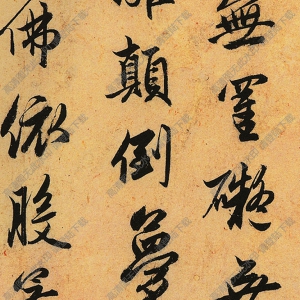 無罣礙無
顛倒夢
佛依般